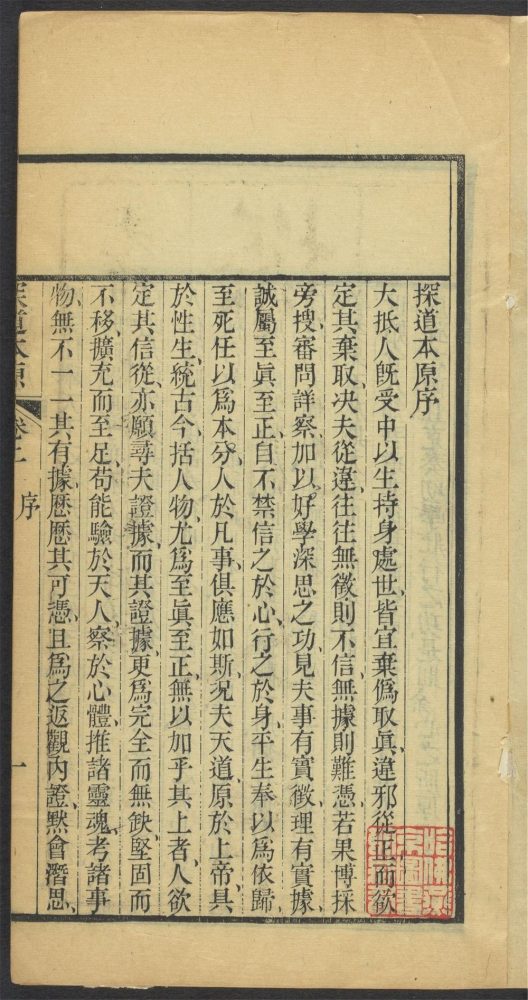 探道本原序
大抵人旣受中以生持身處世皆宜棄僞取眞違邪從正而欲
定其棄取决夫從違往往無徵則不信無據則難憑若果博採
旁搜審問詳察加以好學深思之功見夫事有實徵理有實據
誠屬至眞至正自不禁信之於心行之於身平生奉以爲依歸
至死任以爲本分人於凡事俱應如斯况夫天道原於上帝具
於性生統古今括人物尤爲至眞至正無以加乎其上者人欲
定其信從亦願尋夫證據而其證據更爲完全而無缺堅固而
不移擴充而至足苟能驗於天人察於心體推諸靈魂考諸事
物無不一一其有據歷歷其可憑且爲之返觀內證默會潛思
探道本原 卷上 序 一